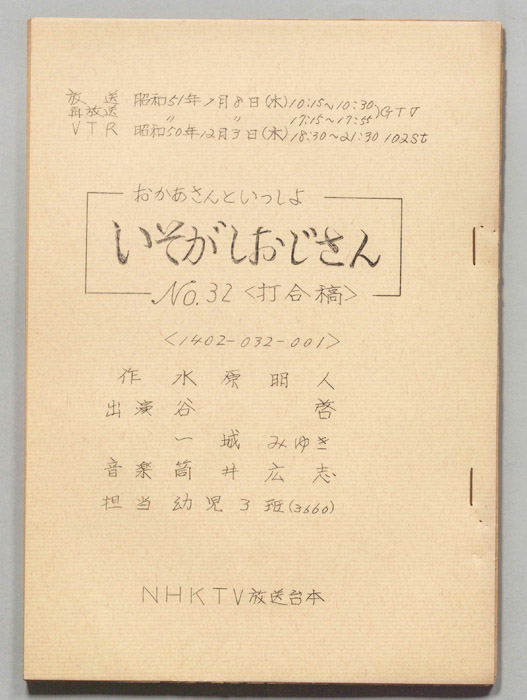 放送 昭和51年1月8日(木)10:15~10:30
再放送 〃 〃 17:15~17:55)GTV
VTR 昭和50年12月3日(水)18:30~21:30 102St
おかあさんといっしよ
いそがしおじさん
No.32<打合稿>
<1402-032-001>
作 水原明人
出演 谷啓
一城みゆき
音楽 筒井広志
担当 幼児3班(3660)
NHKTV放送台本